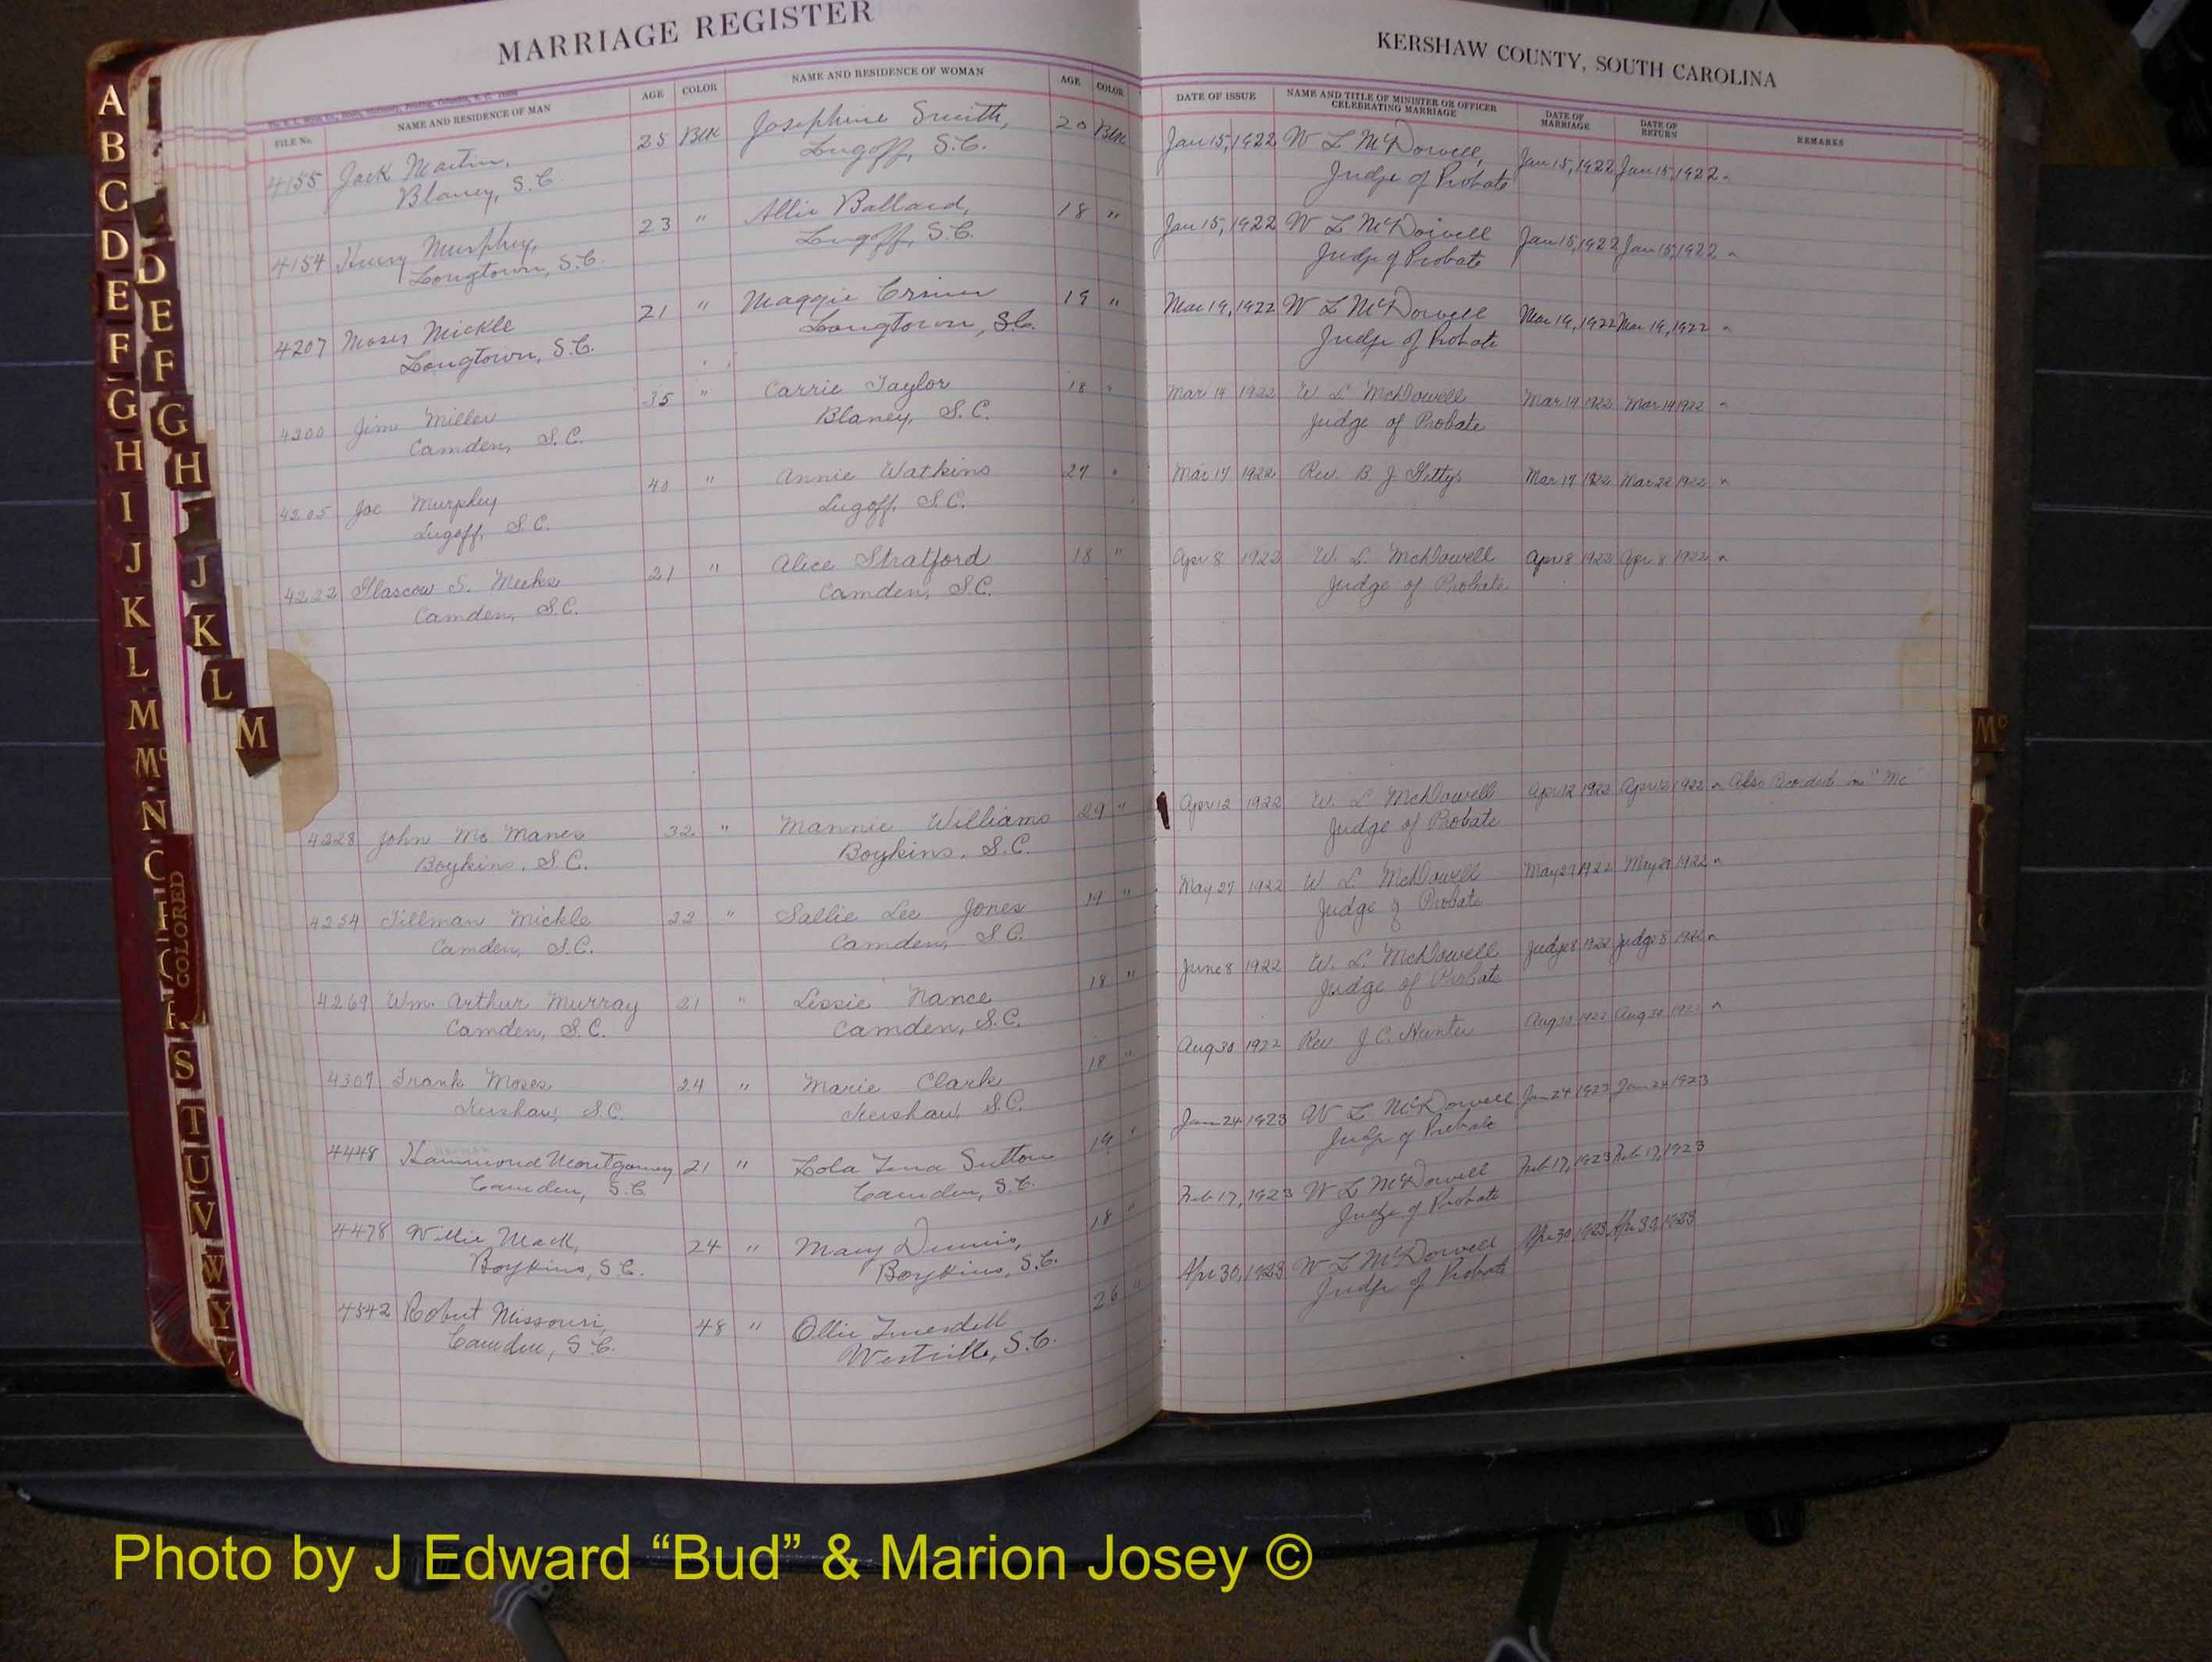 MARRIAGE REGISTER
KERSHAW COUNTY, SOUTH CAROLINA
FILE No. NAME AND RESIDENCE OF MAN AGE COLOR NAME AND RESIDENCE OF WOMAN AGE COLOR DATE OF ISSUE NAME AND TITLE OF MINISTER OR OFFICER CELEBRATING MARRIAGE DATE OF MARRIAGE DATE OF RETURN REMARKS
4155 Jack Martin, 25 Blk Josephine Smith, 20 Blk Jan 15, 1922 W L McDowell, Jan 15, 1922 Jan 15, 1922
Blaney, S.C. Lugoff, S.C. Judge of Probate
4154 Henry Murphy, 23 " Allie Ballard, 18 " Jan 15, 1922 W L McDowell Jan 15, 1922 Jan 15, 1922
Longtown, S.C. Lugoff, S.C. Judge of Probate
4207 Moses Mickle 21 " Maggie 19 " Mar 19, 1922 W L McDowell Mar 19, 1922 Mar 19, 1922
Longtown, S.C. Longtown, S.C. Judge of Probate
4200 Jim Miller 35 " Carrie Taylor 18 " Mar 14 1922 W. L McDowell Mar 14 1922 Mar 14 1922
Camden, S.C. Blaney, S.C. Judge of Probate
4205 Joe Murphey 40 " Annie Watkins 27 " Mar 17 1922 Rev. B J Gettys Mar 17 1922 Mar 22 1922
Lugoff, S.C. Lugoff, S.C.
4222 Glascow S. Meeks 21 " Alice Stratford 18 " Apr 8 1922 W. L. McDowell Apr 8 1922 Apr 8 1922
Camden, S.C. Camden, S.C. Judge of Probate
4228 John Mc Manes 32 " Mannie Williams 29 " Apr 12 1922 W. L McDowell Apr 12 1922 Apr 12 1922 Also Recorded in "Mc"
Boykins, S.C. Boykins, S.C. Judge of Probate
4254 Tillman Mickle 22 " Sallie Lee Jones 19 " May 27 1922 W L. McDowell May 27 1922 May 27 1922
Camden, S.C. Camden, S.C. Judge of Probate
4269 Wm. Arthur Murray 21 " Lessie Nance 18 " June 8 1922 W. L. McDowell Judge 8 1922 Judge 8 1922
Camden, S.C. Camden, S.C. Judge of Probate
4307 Frank Moses 24 " Marie Clark 18 " Aug 30 1922 Rev J C. Hunter Aug 30 1922 Aug 30 1922
Kershaw, S.C. Kershaw, S.C.
4448 Hammond Montgomery 21 " Lola Sutton 19 " Jan 24 1923 W L McDowell Jan 24 1923 Jan 24 1923
Camden, S.C. Camden, S.C. Judge of Probate
4478 Willie Mack, 24 " Mary 18 " Feb 17, 1923 W L McDowell Feb 17, 1923 Feb 17, 1923
Boykins, S.C. Boykins, S.C. Judge of Probate
4542 Robert Missouri, 48 " Ollie 26 " Apr 30, 1923 W L McDowell Apr 30, 1923 Apr 30, 1923
Camden, S.C. Westville, S.C. Judge of Probate
A
B
C
D
E
F
G
H
I
J
K
L
M
Mc
N
S
T
U
V
W
Y
D
E
F
G
H
J
K
L
M
COLORED
Mc
Photo by J Edward “Bud” & Marion Josey ©